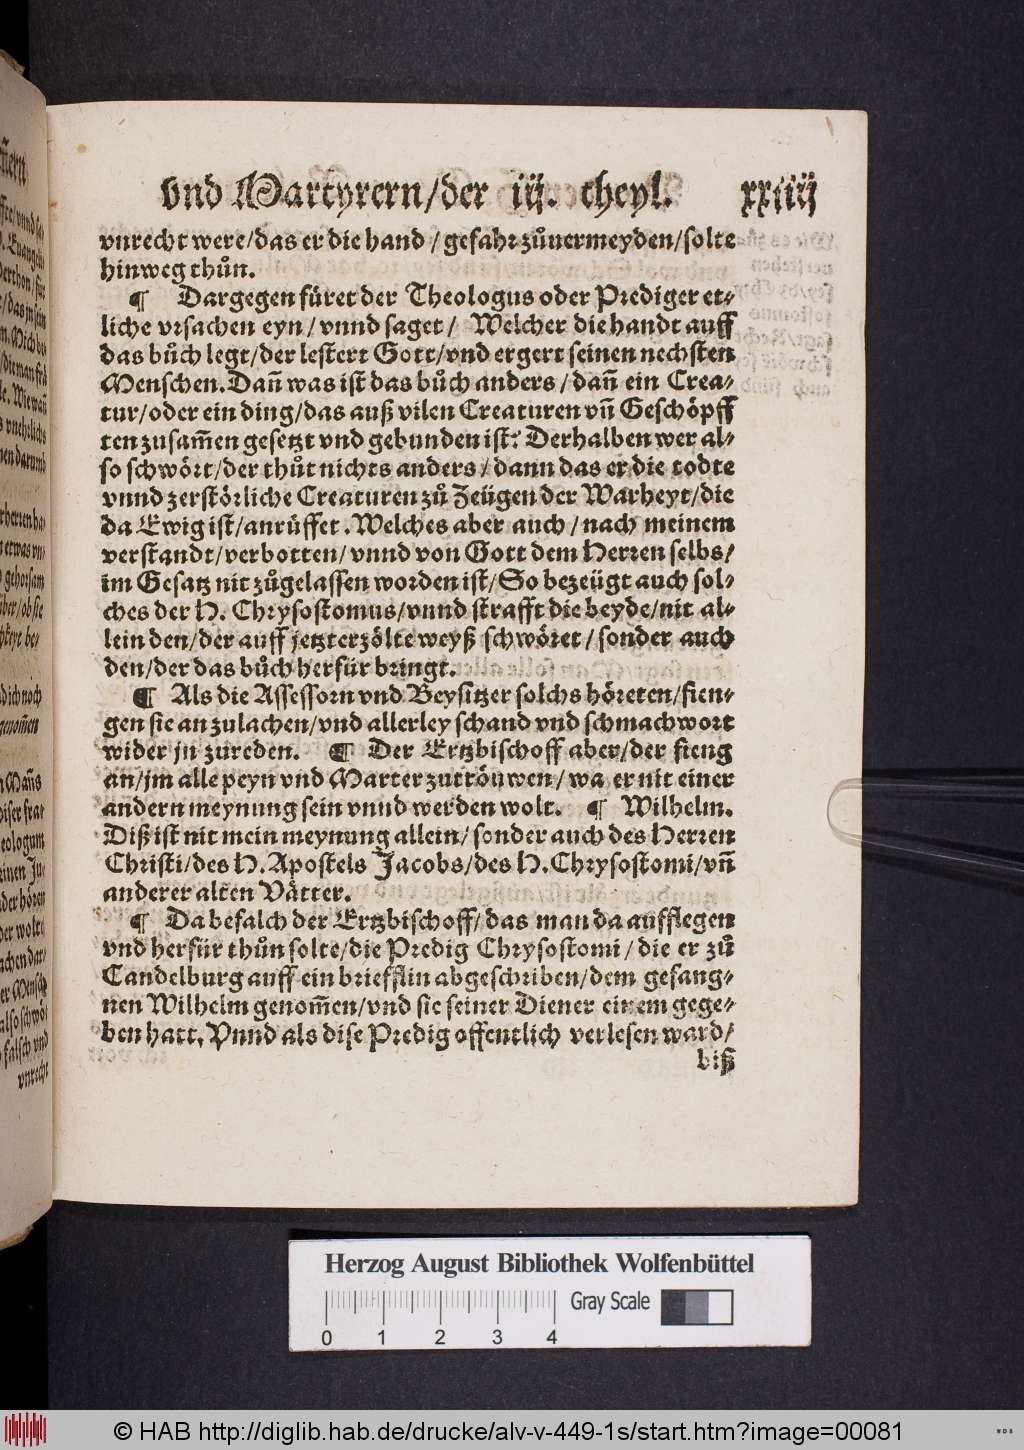 vnd Martyrern/der iij. theyl. xxiiij
vnrecht were/das er die hand/gefahr zůuermeyden/solte
hinweg thůn.
¶ Dargegen füret der Theologus oder Prediger et⸗
liche vrsachen eyn/vnnd saget/ Welcher die handt auff
das bůch legt/der lestert Gott/vnd ergert seinen nechsten
Menschen. Dañ was ist das bůch anders/dañ ein Crea⸗
tur/oder ein ding/das auß vilen Creaturen vñ Geschöpff
ten zusam̃en gesetzt vnd gebunden ist? Derhalben wer al⸗
so schwört/der thůt nichts anders/dann das er die todte
vnnd zerstörliche Creaturen zů Zeügen der Warheyt/die
da Ewig ist/anrüffet. Welches aber auch/nach meinem
verstandt/verbotten/vnnd von Gott dem Herren selbs/
im Gesatz nit zůgelassen worden ist/So bezeügt auch sol⸗
ches der H. Chrysostomus/vnnd strafft die beyde/nit al⸗
lein den/der auff jetzterzölte weyß schwöret/sonder auch
den/der das bůch herfür bringt.
¶ Als die Assessorn vnd Beysitzer solchs höreten/fien⸗
gen sie an zulachen/vnd allerley schand vnd schmachwort
wider jn zureden. ¶ Der Ertzbischoff aber/der fieng
an/jm alle peyn vnd Marter zutröuwen/wa er nit einer
andern meynung sein vnnd werden wolt. ¶ Wilhelm.
Diß ist nit mein meynung allein/sonder auch des Herren
Christi/des H. Apostels Jacobs/des H. Chrysostomi/vñ
anderer alten Vätter.
¶ Da befalch der Ertzbischoff/das man da aufflegen
vnd herfür thůn solte/die Predig Chrysostomi/die er zů
Candelburg auff ein briefflin abgeschriben/dem gefang⸗
nen Wilhelm genom̃en/vnd sie seiner Diener einem gege⸗
ben hatt. Vnnd als dise Predig offentlich verlesen ward/
biß
Herzog August Bibliothek Wolfenbüttel
Gray Scale
0 1 2 3 4
© HAB http://diglib.hab.de/drucke/alv-v-449-1s/start.htm?image=00081